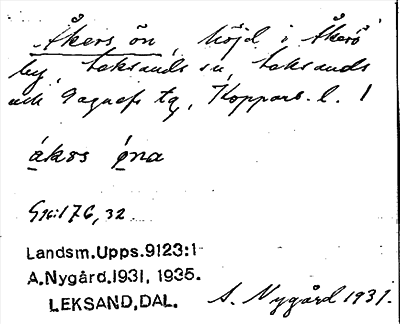 Åkers ön, höjd i Åkerö
by, Leksands sn, Leksands
och Gagnefs tg, Kopparb. l. 1
ákǝs ǫ́na
Gk:176, 32
Landsm.Upps.9123:1
A.Nygård.1931, 1935.
LEKSAND,DAL.
A. Nygård 1931.